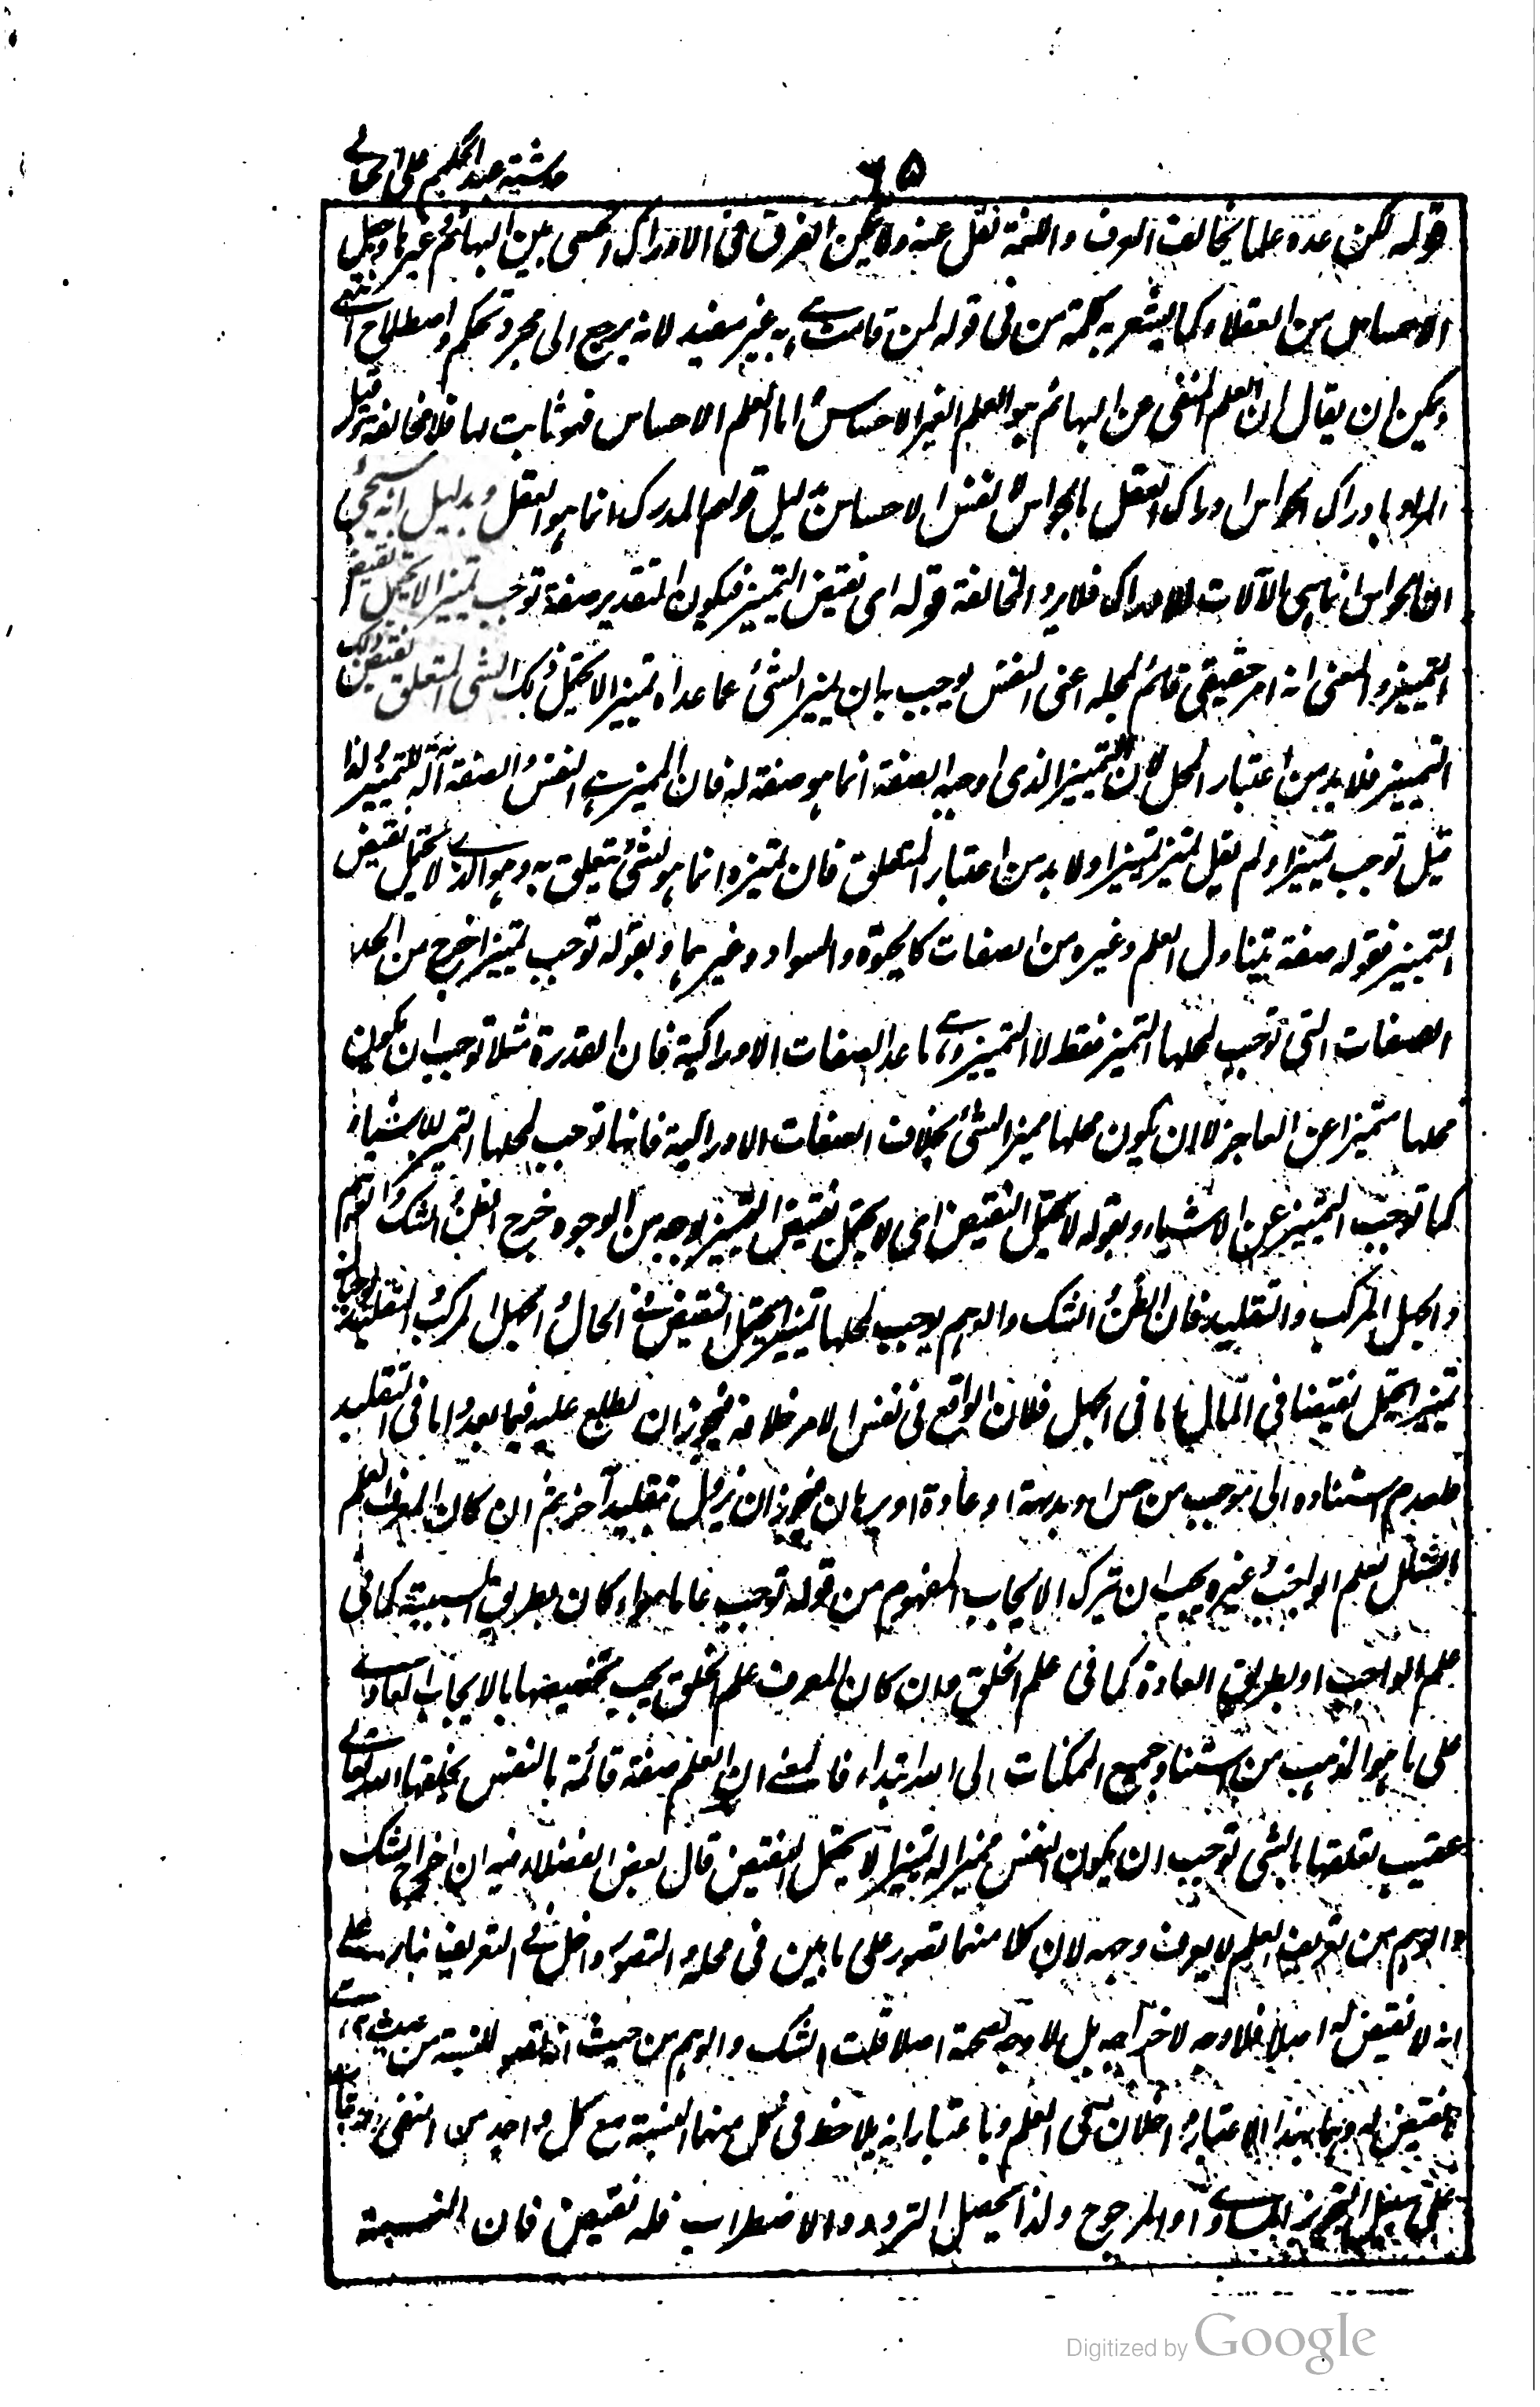 حاشیة عبد الحکیم علی الخیالے
٦٥
قوله لکن عده علما یخالف العرف واللغة نقل عنه ولا یمکن الفرق فی الادراک الحسی بین البهائم غیرها وجعل
الاحساس من العقلاء کما یشعر به کلمة من فی قوله لمن قامت هے به غیر مفید لانه یرجع الی مجرد تحکم واصطلاح انتهے
ویمکن ان یقال ان العلم المنفی عن البهائم هو العلم الغیر الاحساس اما العلم الاحساس فهو ثابت لها فلا مخالفة قیل
المراد بادراک الحواس ادراک العقل بالحواس نفس الاحساس بدلیل قولهم المدرک انما هو العقل وبدلیل انه سیجئ
ان الحواس انما هی الآلات للادراک فلا یرد المخالفة قوله ای نقیض التمییز فیکون التقدیر صفة توجب تمییزا لا یحتمل نقیض
التمییز والمعنی انه امر حقیقی قائم بمحله اعنی النفس یوجب بان یمیز الشئ عما عداه تمییزا لا یحتمل ذلک الشی المتعلق نقیض ذلک
التمییز فلابد من اعتبار المحل لان التمییز الذی اوجبه الصفة انما هو صفة له فان الممیز هے النفس والصفة آلة للتمییز ولذا
قیل توجب تمییزا ولم یقل تمیز تمییزا ولا بد من اعتبار المتعلق فان تمییزه انما هو لشئ یتعلق به وهو الذے لا یحتمل نقیض
التمییز فقوله صفة یتناول العلم وغیره من الصفات کالحیوة والسواد وغیرهما وبقوله توجب تمییزا خرج من الحد
الصفات التی توجب لمحلها التمیز فقط لا التمییز وهے ما عدا الصفات الادراکیة فان القدرة مثلا توجب ان یکون
محلها متمیزا عن العاجز لا ان یکون محلها ممیزا لشئ بخلاف الصفات الادراکیة فانها توجب لمحلها التمییز للاشیاء
کما توجب التمییز عن الاشیاء وبقوله لا یحتمل النقیض ای لا یحتمل نقیض التمییز بوجه من الوجوه خرج الظن والشک والوهم
والجهل المرکب والتقلید فان الظن والشک والوهم یوجب لمحلها تمییزا یحتمل النقیض فے الحال والجهل المرکب والتقلید یوجبان
تمییزا یحتمل نقیضا فی المآل اما فی الجهل فلان الواقع فی نفس الامر خلافه فیجوز ان یطلع علیه فیما بعد واما فی التقلید
فلعدم استناده الی موجب من حس او بدیهة او عادة او برهان فیجوز ان یزول بتقلید آخر ثم ان کان المعرف العلم
الشامل لعلم الواجب وغیره یجب ان یترک الایجاب المفهوم من قوله توجب عاما سواء کان بطریق السببیة کما فی
علم الواجب او بطریق العادة کما فی علم الخلق وان کان المعرف علم الخلق یجب تخصیصها بالایجاب العادے
علی ما هو المذهب من استناد جمیع الممکنات الی الله ابتداء فالمعنے ان العلم صفة قائمة بالنفس یخلقها الله تعالے
عقیب تعلقها بالشی توجب ان یکون النفس ممیزا له تمییزا لا یحتمل النقیض قال بعض الفضلاء فیه ان اخراج الشک
والوهم من تعریف العلم لا یعرف وجهه لان کلا منهما تصور علی ما بین فی محله والتصور داخل فے التعریف بناء علے
انه لا نقیض له اصلا فلا وجه لاخراجه بل لا وجه لصحته اصلا قلت الشک والوهم من حیث انه تصور للنسبة من حیث هے
لا نقیض له وهما بهذا الاعتبار داخلان فی العلم وباعتبار انه یلاحظ فی کل منهما النسبة مع کل واحد من النفی والاثبات
علی سبیل التجویز المساوے او المرجوح ولذا یحصل التردد والاضطراب فله نقیض فان النسبة
Digitized by Google